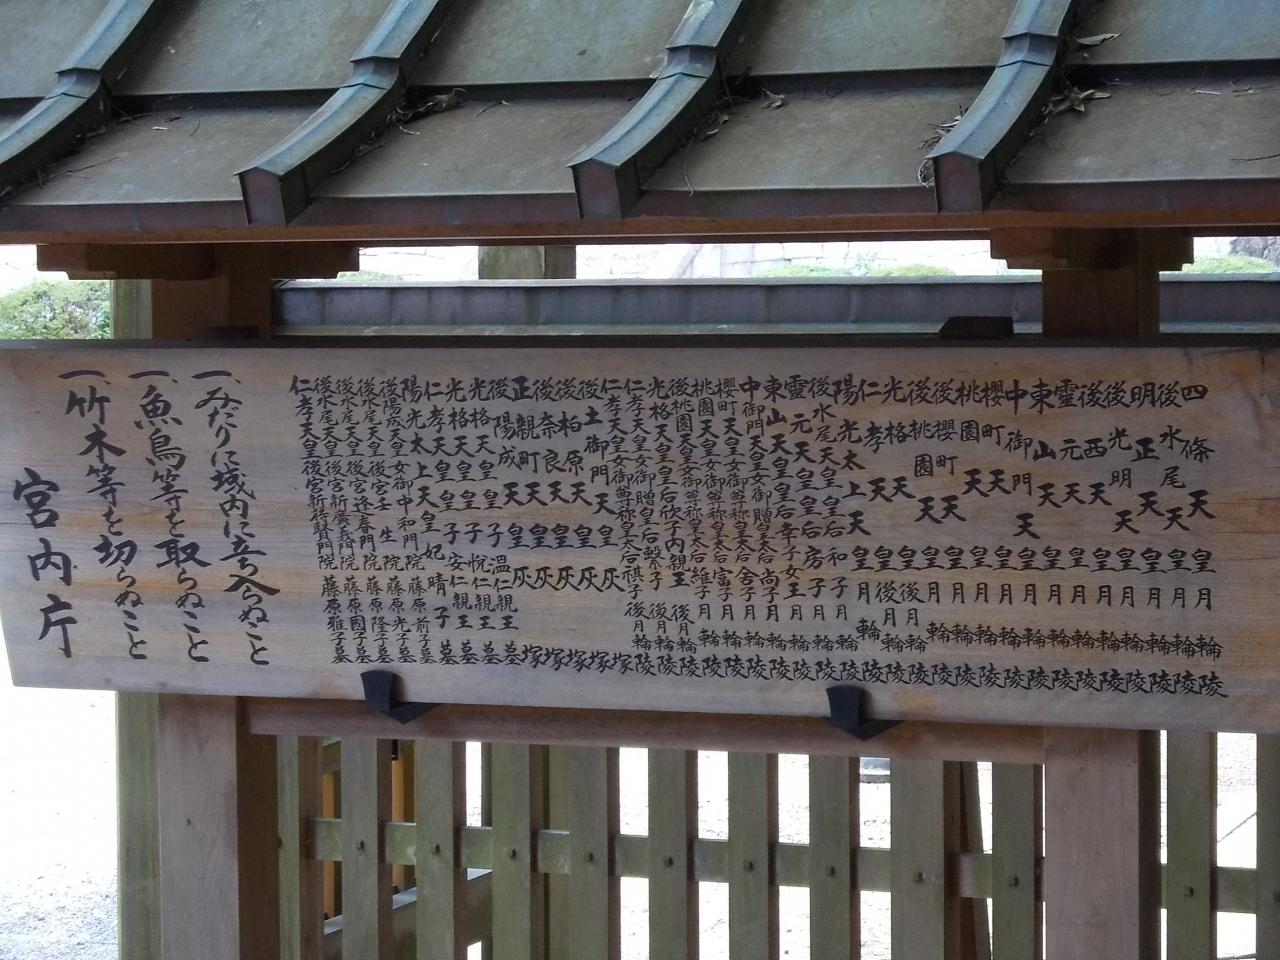 四條天皇 月輪陵
後水尾天皇 月輪陵
明正天皇 月輪陵
後光明天皇 月輪陵
後西天皇 月輪陵
靈元天皇 月輪陵
東山天皇 月輪陵
中御門天皇 月輪陵
櫻町天皇 月輪陵
桃園天皇 月輪陵
後櫻町天皇 月輪陵
後桃園天皇 月輪陵
光格天皇 後月輪陵
仁孝天皇 後月輪陵
陽光太上天皇 月輪陵
後水尾天皇皇后和子 月輪陵
靈元天皇皇后房子 月輪陵
東山天皇皇后幸子女王 月輪陵
中御門天皇女御贈皇太后尚子 月輪陵
櫻町天皇女御尊称皇太后舍子 月輪陵
桃園天皇女御尊称皇太后富子 月輪陵
後桃園天皇女御尊称皇太后維子 月輪陵
光格天皇皇后欣子内親王 後月輪陵
仁孝天皇女御贈皇后繋子 後月輪陵
仁孝天皇女御尊称皇太后祺子 後月輪陵
後土御門天皇 灰塚
後柏原天皇 灰塚
後奈良天皇 灰塚
正親町天皇 灰塚
後陽成天皇 灰塚
光格天皇皇子温仁親王 墓
光格天皇皇子悦仁親王 墓
仁孝天皇皇子安仁親王 墓
陽光太上天皇妃晴子 墓
後陽成天皇女御中和門院藤原前子 墓
後水尾天皇後宮壬生院藤原光子 墓
後水尾天皇後宮逢春門院藤原隆子 墓
後水尾天皇後宮新廣義門院藤原國子 墓
仁孝天皇後宮新待賢門院藤原雅子 墓
一、みだりに域内に立ち入らぬこと
一、魚鳥等を取らぬこと
一、竹木等を切らぬこと
宮内庁